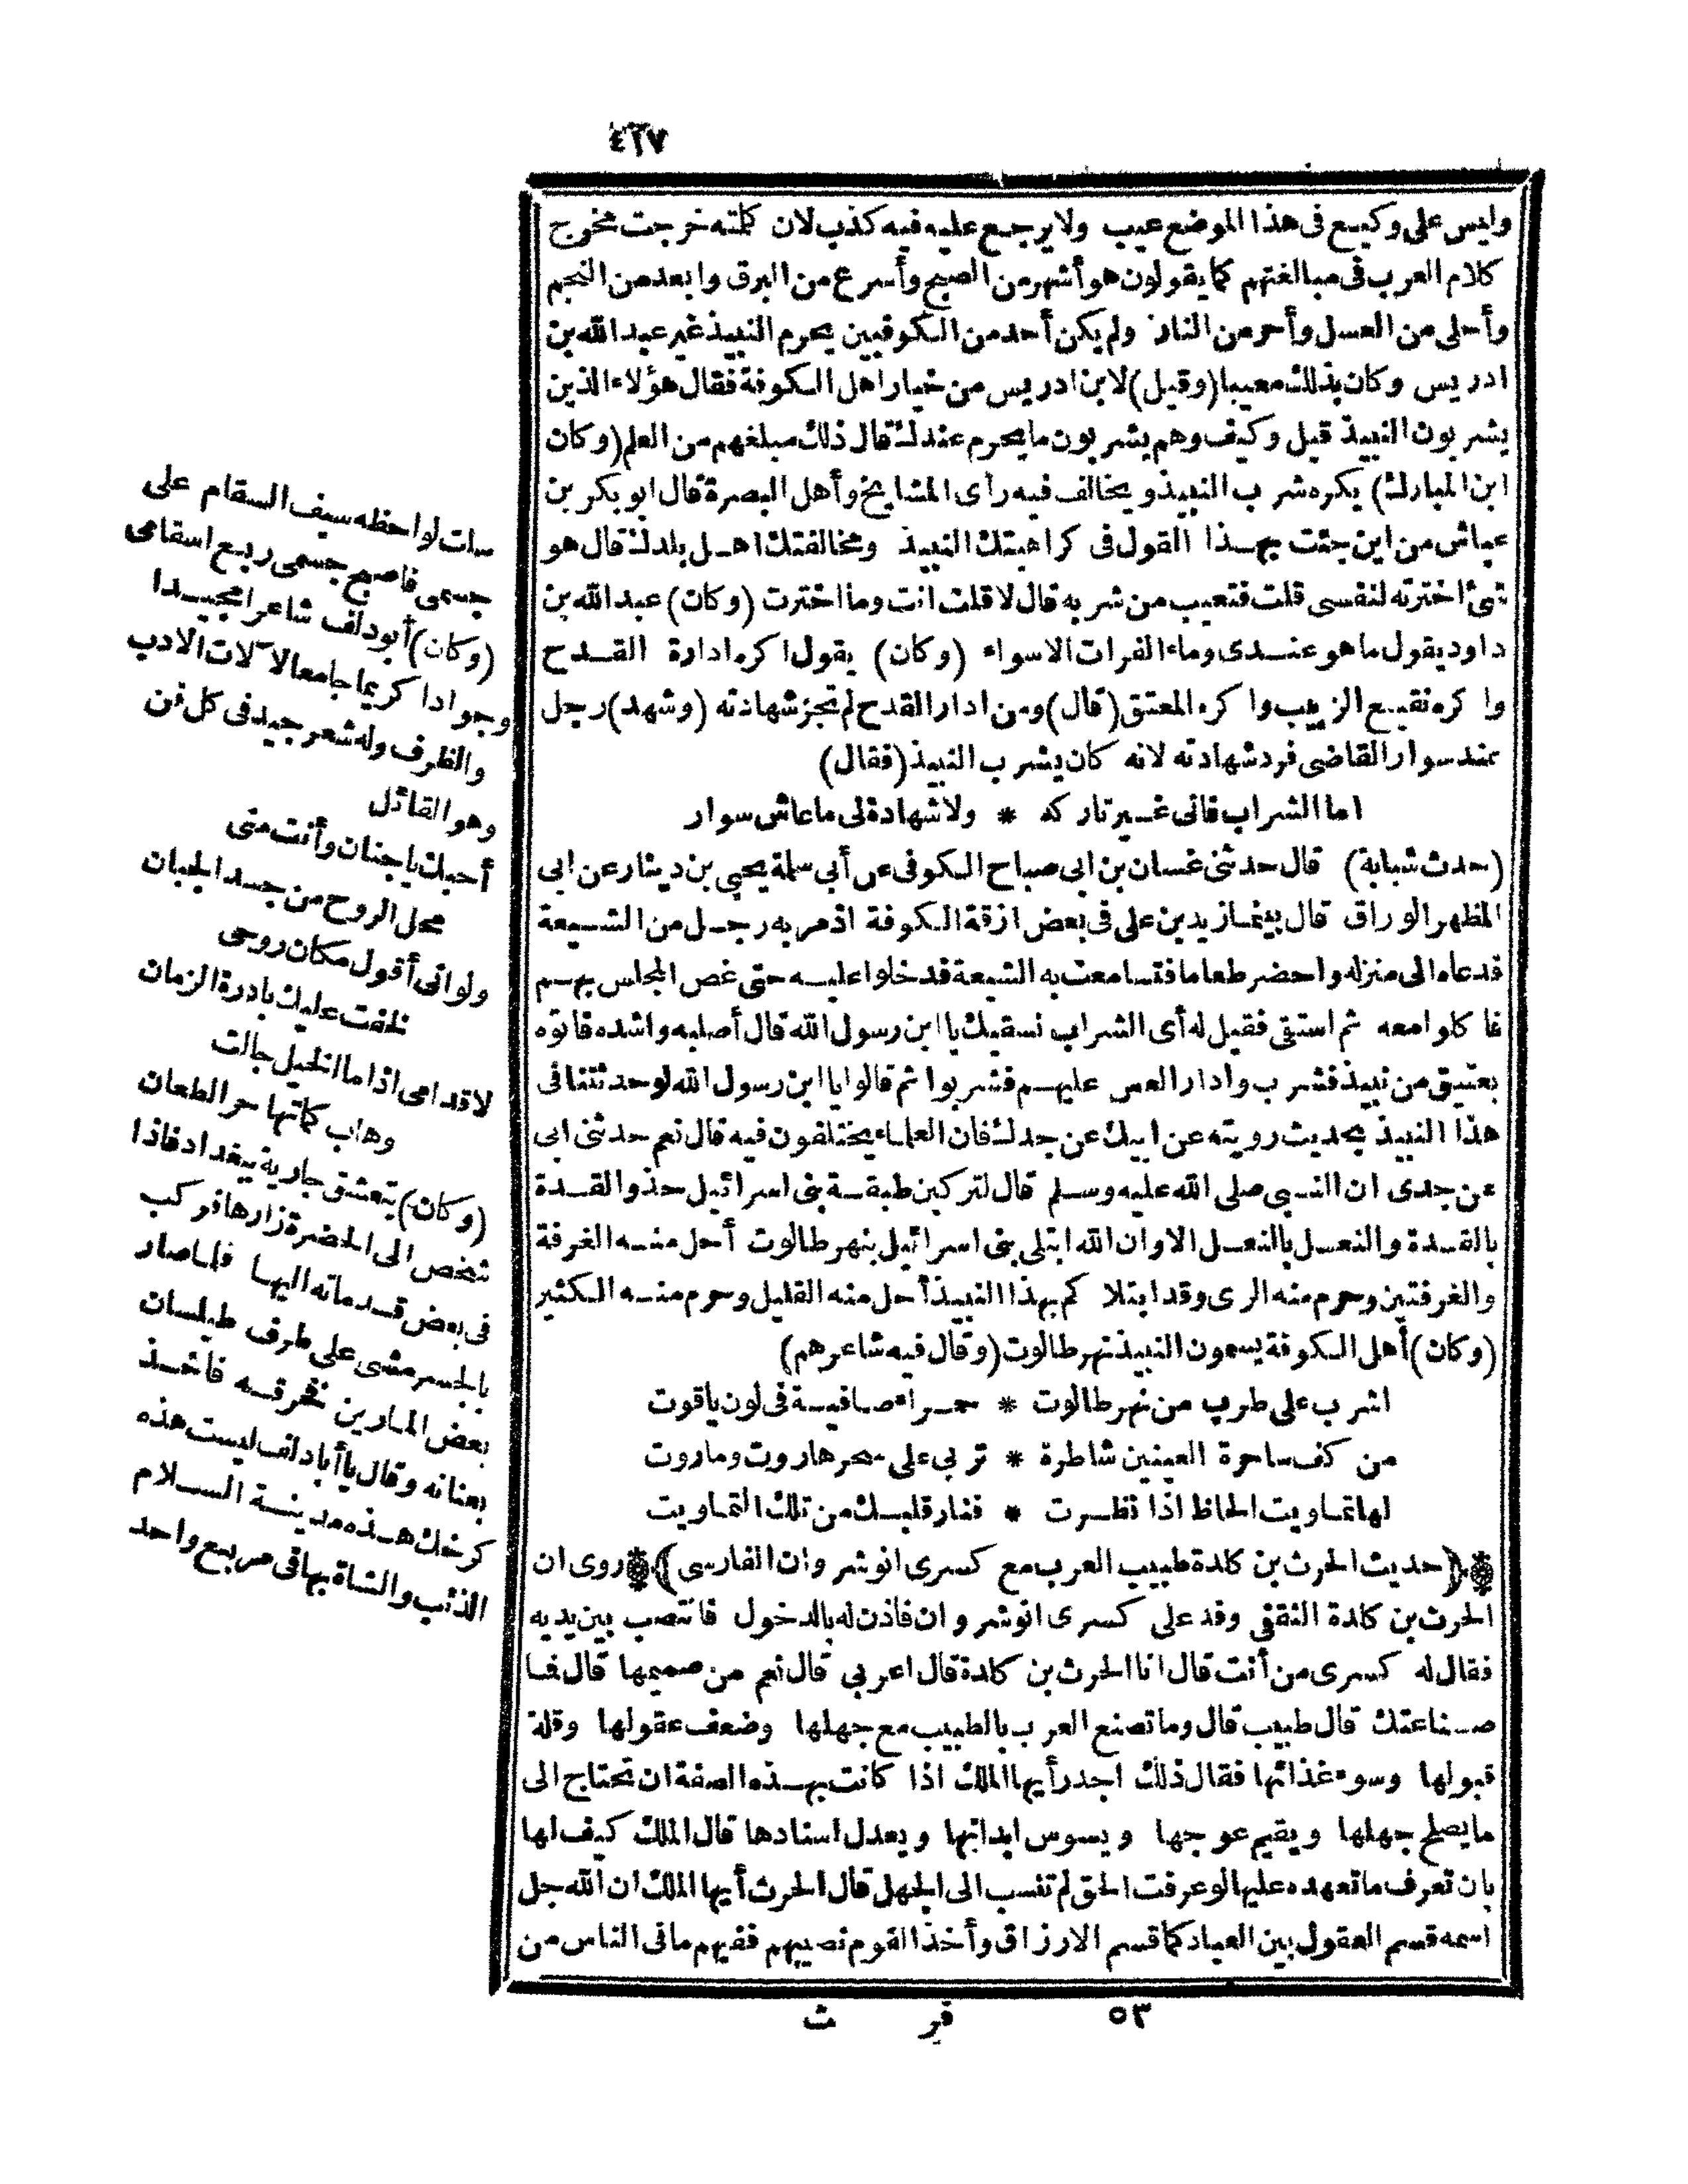 ٤١٧
وليس على وكيع فى هذا الموضع عيب ولا يرجع عليه فيه كذب لان كلته خرجت مخرج
كلام العرب فى مبالغتهم كما يقولون هو أشهر من الصبح وأسرع من البرق وابعد من النجم
وأحلى من العسل وأحر من النار ولم يكن أحد من الكوفيين يحرم النبيذ غير عبد الله بن
ادريس وكان بذلك معيبا (وقيل) لابن ادريس من خيار اهل الكوفة فقال هؤلاء الذين
يشربون النبيذ قيل وكيف وهم يشربون ما يحرم عندك قال ذلك مبلغهم من العلم (وكان
ابن المبارك) يكره شرب النبيذ ويخالف فيه رأى المشايخ وأهل البصرة قال ابو بكر بن
عياش من اين جئت بهذا القول فى كراهيتك النبيذ ومخالفتك اهل بلدك قال هو
شئ اخترته لنفسى قلت فتعيب من شربه قال لا قلت انت وما اخترت (وكان) عبد الله بن
داود يقول ما هو عندى وماء الفرات الاسواء (وكان) يقول اكره ادارة القدح
واكره نقيع الزبيب واكره المعتق (قال) ومن ادار القدح لم تجز شهادته (وشهد) رجل
عند سوار القاضى فرد شهادته لانه كان يشرب النبيذ (فقال)
اما الشراب فانى غير تاركه * ولا شهادة لى ما عاش سوار
(حدث شبابة) قال حدثنى غسان بن ابى صباح الكوفى عن أبي سلمة يحيى بن دينار عن ابى
المظهر الوراق قال بينما زيد بن على فى بعض ازقة الكوفة اذ مر به رجل من الشيعة
فدعاه الى منزله واحضر طعاما فتسامعت به الشيعة قد خلوا عليه حتى غص المجلس بهم
فا كلوا معه ثم استقى فقيل له أى الشراب نسقيك يا ابن رسول الله قال أصلبه واشده فاتوه
بعتيق من نبيذ فشرب وادار العس عليهم فشربوا ثم قالوا يا ابن رسول الله لو حدثتنا فى
هذا النبيذ بحديث رويته عن ابيك عن جدك فان العلماء يختلفون فيه قال نعم حدثنى ابى
عن جدى ان النبى صلى الله عليه وسلم قال لتركبن طبقة بنى اسرائيل حذو القذة
بالقذة والنعل بالنعل الا وان الله ابتلى بنى اسرائيل بنهر طالوت أحل منه الغرفة
والغرفتين وحرم منه الرى وقد ابتلا كم بهذا النبيذ أحل منه القليل وحرم منه الكثير
(وكان) أهل الكوفة يسمون النبيذ نهر طالوت (وقال فيه شاعرهم)
اشرب على طرب من نهر طالوت * حمراء صافية فى لون ياقوت
من كف ساحرة العينين شاطرة * تربى على سحر هاروت وماروت
لها تماويت الحاظ اذا نظرت * فنار قلبك من تلك التماويت
﴿حديث الحرث بن كلدة طبيب العرب مع كسرى انوشروان الفارسى﴾ روى ان
الحرث بن كلدة الثقفى وفد على كسرى انوشروان فاذن له بالدخول فانتصب بين يديه
فقال له كسرى من أنت قال انا الحرث بن كلدة قال اعربي قال نعم من صميمها قال فما
صناعتك قال طبيب قال وما تصنع العرب بالطبيب مع جهلها وضعف عقولها وقلة
قبولها وسوء غذائها فقال ذلك اجدر أيها الملك اذا كانت بهذه الصفة ان تحتاج الى
ما يصلح جهلها ويقيم عوجها ويسوس ابدانها ويعدل اسنادها قال الملك كيف لها
بان تعرف ما تعهده عليها لو عرفت الحق لم تنسب الى الجهل قال الحرث أيها الملك ان الله جل
اسمه قسم العقول بين العباد كما قسم الارزاق وأخذ القوم نصيبهم ففيهم ما فى الناس من
٥٣ فر ث
سلت لواحظه سيف السقام على
جسمى فاصبح جسمى ربع اسقامى
(وكان) أبو دلف شاعرا مجيدا
وجوادا كريما جامعا لآلات الادب
والظرف وله شعر جيد فى كل فن
وهو القائل
أحبك يا جنان وأنت منى
محل الروح من جسد الجبان
ولو انى أقول مكان روحى
لخفت عليك بادرة الزمان
لاقدامى اذا ما الخيل جالت
وهاب كماتها حر الطعان
(وكان) يتعشق جارية ببغداد فاذا
شخص الى الحضرة زارها فركب
فى بعض قدماته اليها فلما صار
بالجسر مشى على طرف طيلسان
بعض المارين فخرقه فاخذ
بعنانه وقال يا أبا دلف ليست هذه
كرخك هذه مدينة السلام
الذئب والشاة بها فى مربع واحد